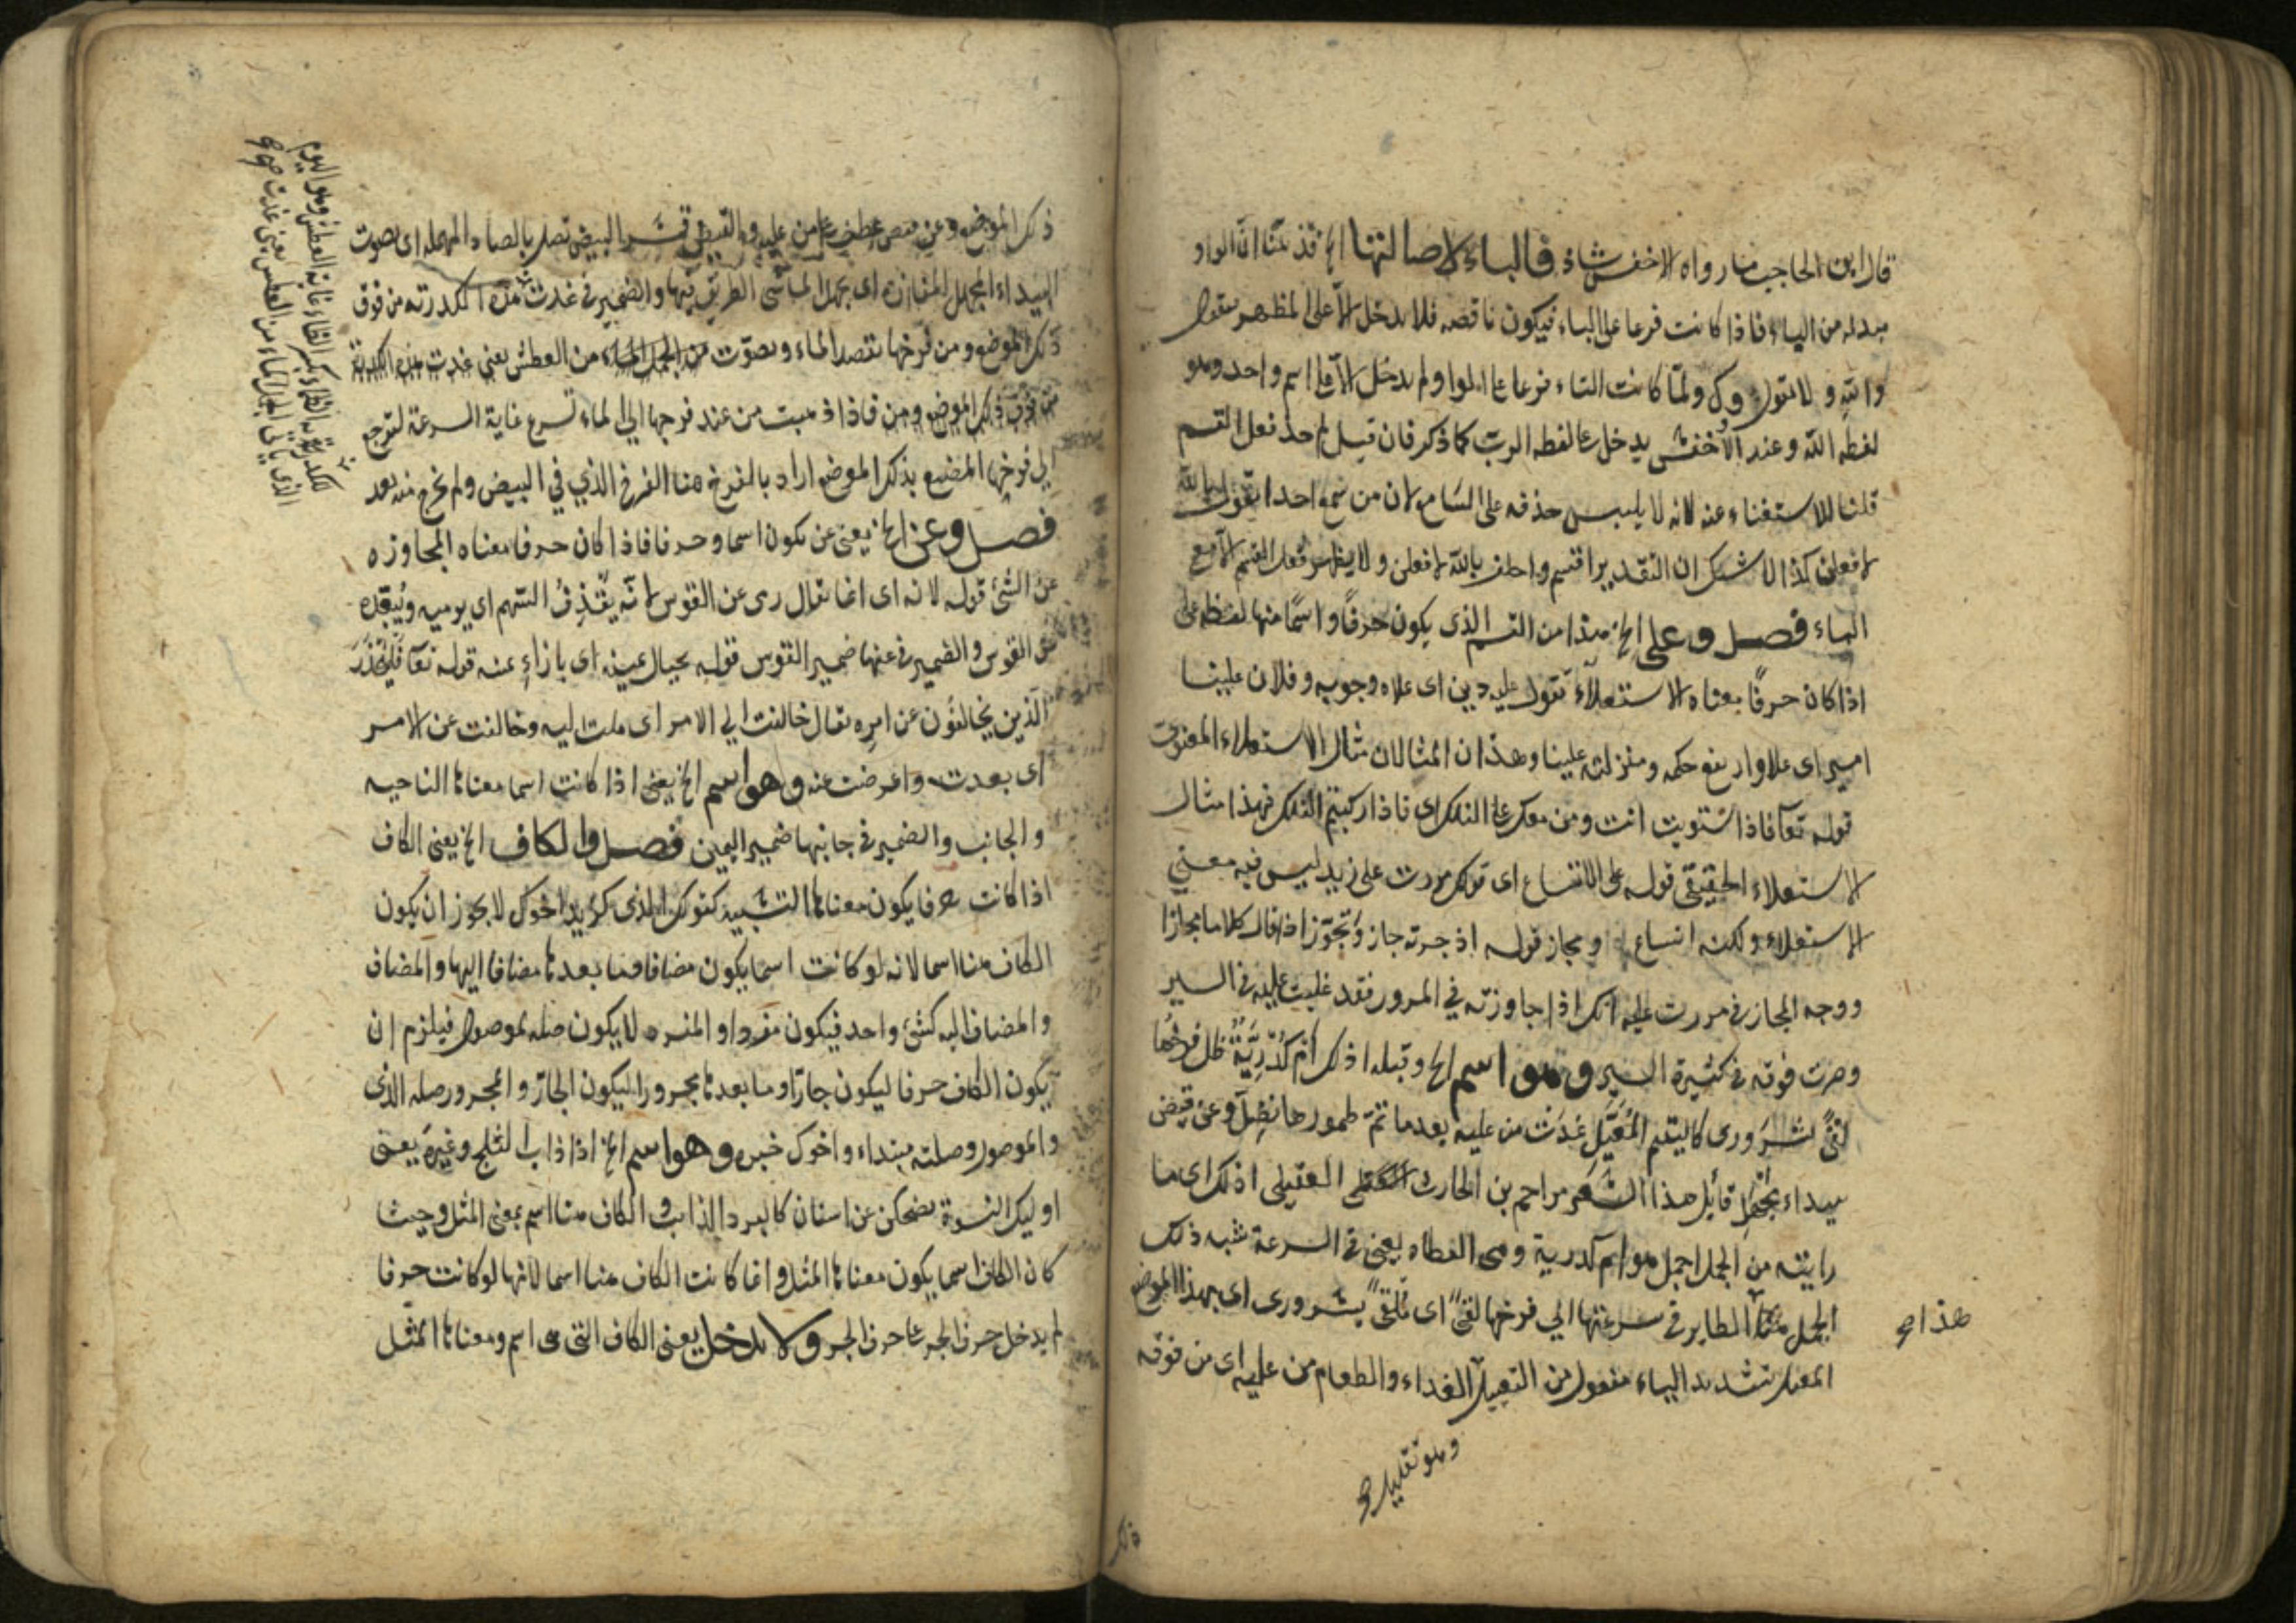 قال ابن الحاجب ما رواه الاخفش شاذ فالباء لاصالتها الخ قد بينا ان الواو
مبدله من الباء فاذا كانت فرعا على الباء فيكون ناقصه فلا يدخل الا على المظهر بقول
والله ولا تقول وك ولما كانت التاء فرعا على الواو ولم يدخل الا على اسم واحد وهو
لفظه الله وعند الاخفش يدخل على لفظه الرب كما ذكر فان قيل لم حذف فعل القسم
قلنا للاستغناء عنه لانه لا يلبس حذفه على السامع لان من سمع احدا يقول بالله
لافعلن كذا لا شك ان التقدير اقسم واحلف بالله لافعلن ولا يظهر فعل القسم الا مع
الباء فصل وعلى الخ هذا من القسم الذى يكون حرفًا واسمًا منها لفظه على
اذا كان حرفًا معناه الاستعلاء تقول عليه دين اى علاه وجوبه وفلان علينا
امير اى علا وارتفع حكمه ومنزلته علينا وهذان المثالان مثال الاستعلاء المعنوى
قوله تعآ فاذا استويت انت ومن معك على الفلك اى فاذا ركبتم الفلك فهذا مثال
الاستعلاء الحقيقى قوله على الاتساع اى قولك مررت على زيد ليس فيه معنى
الاستعلاء ولكنه اتساع ومجاز قوله اذ جرته جاز وتجوز اذا قال كلاما مجازا
ووجه المجاز فى مررت عليه انك اذا جاوزته فى المرور فقد غلبت عليه فى السير
وصرت فوقه فى كثيرة السير وهو اسم الخ وقبله اذلك ام كُدْرِيَّةٌ ظل فرخُها
لقىً بشَرَورى كاليتيم المُعَيَّلِ غَدَت من عليه بعد ما تمّ ظمؤها تصِلّ وعن قيض
ببيداء مجهل قايل هذا الشعر مزاحم بن الحارث العقيلى اذلك اى ما
رايته من الجمل اجمل هو ام كدرية وهى القطاه يعنى فى السرعة شبه ذلك
الجمل بهذا الطاير فى سرعتها الي فرخها لقىً اى مُلقىً بشرورى اى بهذا الموضع
المعيل بتشديد الياء مفعول من التعييل الغداء والطعام من عليه اى من فوقه
هذا صح
وهو تقليل صح
ذلك
ذلك الموضع وعن قيض عطف على من عليه والقيض قشر البيض تصل بالصاد المهمله اى يصوت
البيداء المجهل المفازه اى يجهل الماشى الطريق فيها والضمير فى غدت هذه الكدرته من فوق
ذلك الموضع ومن فرخها تقصد الماء وتصوّت من اجل الماء من العطش يعنى غدت هذه الكدرية
من فوق ذلك الموضع ومن فاذا ذهبت من عند فرخها الى الماء تسرع غاية السرعة لترجع
الي فرخها المضيع بذلك الموضع اراد بالفرخ هنا الفرخ الذي في البيض ولم يخرج منه بعد
فصل وعن الخ يعنى عن يكون اسما وحرفا فاذا كان حرفا معناه المجاوزه
عن الشئ قوله لانه اى انما يقال رمى عن القوس لانّه يَقْذِفُ السهم اى يرميه ويُبعِّده
عن القوس والضمير فى عنها ضمير القوس قوله بحيال عينه اى بازاء عنه قوله تعآ فَليَحْذَرِ
الذين يخالفُون عن امرِه يقال خالفت الي الامر اى ملت اليه وخالفت عن الامر
اى بعدت واعرضت عنه وهو اسم الخ يعنى اذا كانت اسما معناها الناحيه
والجانب والضمير فى جانبها ضمير اليمين فصل والكاف الخ يعنى الكاف
اذا كانت حرفا يكون معناها التشبيه كقولك الذى كزيد اخوك لا يجوز ان يكون
الكاف هنا اسما لانه لو كانت اسما يكون مضافا وما بعدها مضافا اليها والمضاف
والمضاف اليه كشئ واحد فيكون مفردا والمفرد لا يكون صله لموصول فيلزم ان
يكون الكاف حرفا ليكون جارّا وما بعدها مجرورا ليكون الجارّ والمجرور صله الذى
والموصول وصلته مبتداء واخوك خبره وهو اسم الخ اذا ذاب الثلج وغيره يعنى
اوليك النسوة يضحكن عن اسنان كالبرد الذايب والكاف هنا اسم بمعنى المثل وحيث
كان الكاف اسما يكون معناها المثل وانما كانت الكاف هنا اسما لانها لو كانت حرفا
لم يدخل حرف الجر على حرف الجر ولا يدخل يعنى الكاف التى هى اسم ومعناها المثل